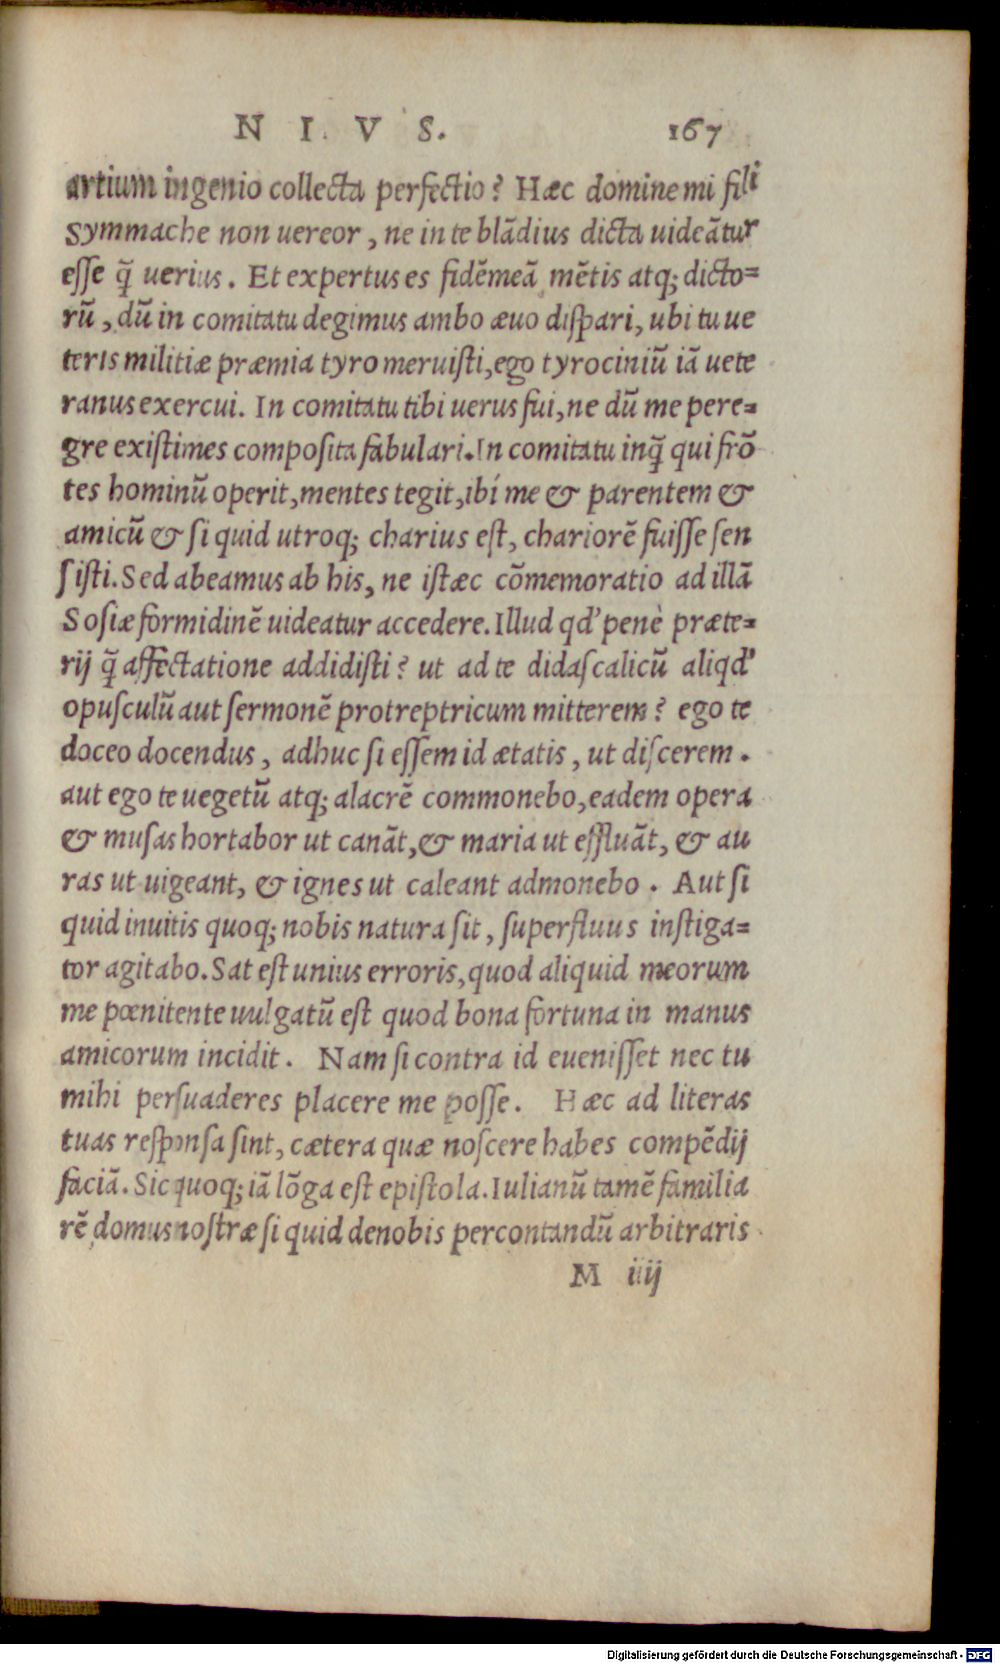 N I V S. 167
artium ingenio collecta perfectio? Hæc domine mi fili
symmache non uereor, ne in te blãdius dicta uideãtur
esse q̃ uerius. Et expertus es fidẽ meã mẽtis atq; dicto=
rũ, dũ in comitatu degimus ambo æuo dispari, ubi tu ue
teris militiæ præmia tyro meruisti, ego tyrociniũ iã uete
ranus exercui. In comitatu tibi uerus fui, ne dũ me pere=
gre existimes composita fabulari. In comitatu inq̃ qui frõ
tes hominũ operit, mentes tegit, ibi me & parentem &
amicũ & si quid utroq; charius est, chariorẽ fuisse sen
sisti. Sed abeamus ab his, ne istæc cõmemoratio ad illã
Sosiæ formidinẽ uideatur accedere. Illud qd' penè præte=
rij q̃ affectatione addidisti? ut ad te didascalicũ aliqd'
opusculũ aut sermonẽ protreptricum mitterem? ego te
doceo docendus, adhuc si essem id ætatis, ut discerem.
aut ego te uegetũ atq; alacrẽ commonebo, eadem opera
& musas hortabor ut canãt, & maria ut effluãt, & au
ras ut uigeant, & ignes ut caleant admonebo. Aut si
quid inuitis quoq; nobis natura sit, superfluus instiga=
tor agitabo. Sat est unius erroris, quod aliquid meorum
me pœnitente uulgatũ est quod bona fortuna in manus
amicorum incidit. Nam si contra id euenisset nec tu
mihi persuaderes placere me posse. Hæc ad literas
tuas responsa sint, cætera quæ noscere habes compẽdij
faciã. Sic quoq; iã lõga est epistola. Iulianũ tamẽ familia
rẽ domus nostræ si quid de nobis percontandũ arbitraris
M iiij
Digitalisierung gefördert durch die Deutsche Forschungsgemeinschaft - DFG